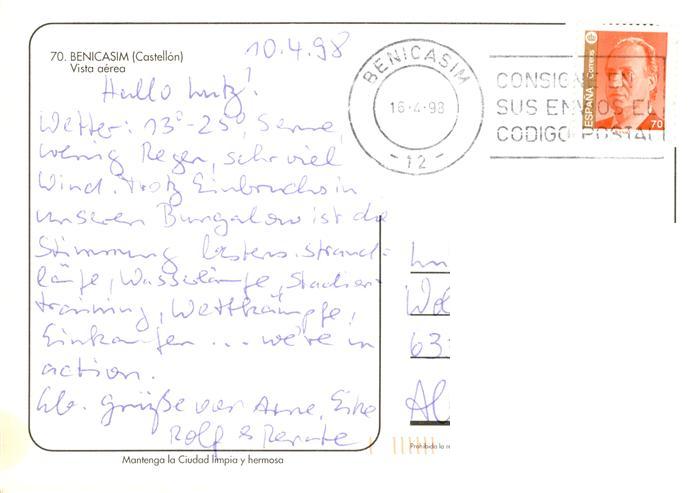 70. BENICASIM (Castellón)
Vista aérea
10.4.98
Hallo Lutz!
Wetter: 13°-25°, Sonne,
wenig Regen, sehr viel
Wind. Trotz Einbruchs in
unseren Bungalow ist die
Stimmung bestens. Strand-
läufe, Wasserläufe, Stadien-
training, Wettkämpfe,
Einkaufen ... we're in
action.
Grüße von Arne, Eike
Rolf & Renate
Mantenga la Ciudad limpia y hermosa
BENICASIM
16-4-98
-12-
CONSIGNE EN
SUS ENVIOS EL
CODIGO POSTAL
ESPAÑA Correos
70
63
Al
Prohibida la re